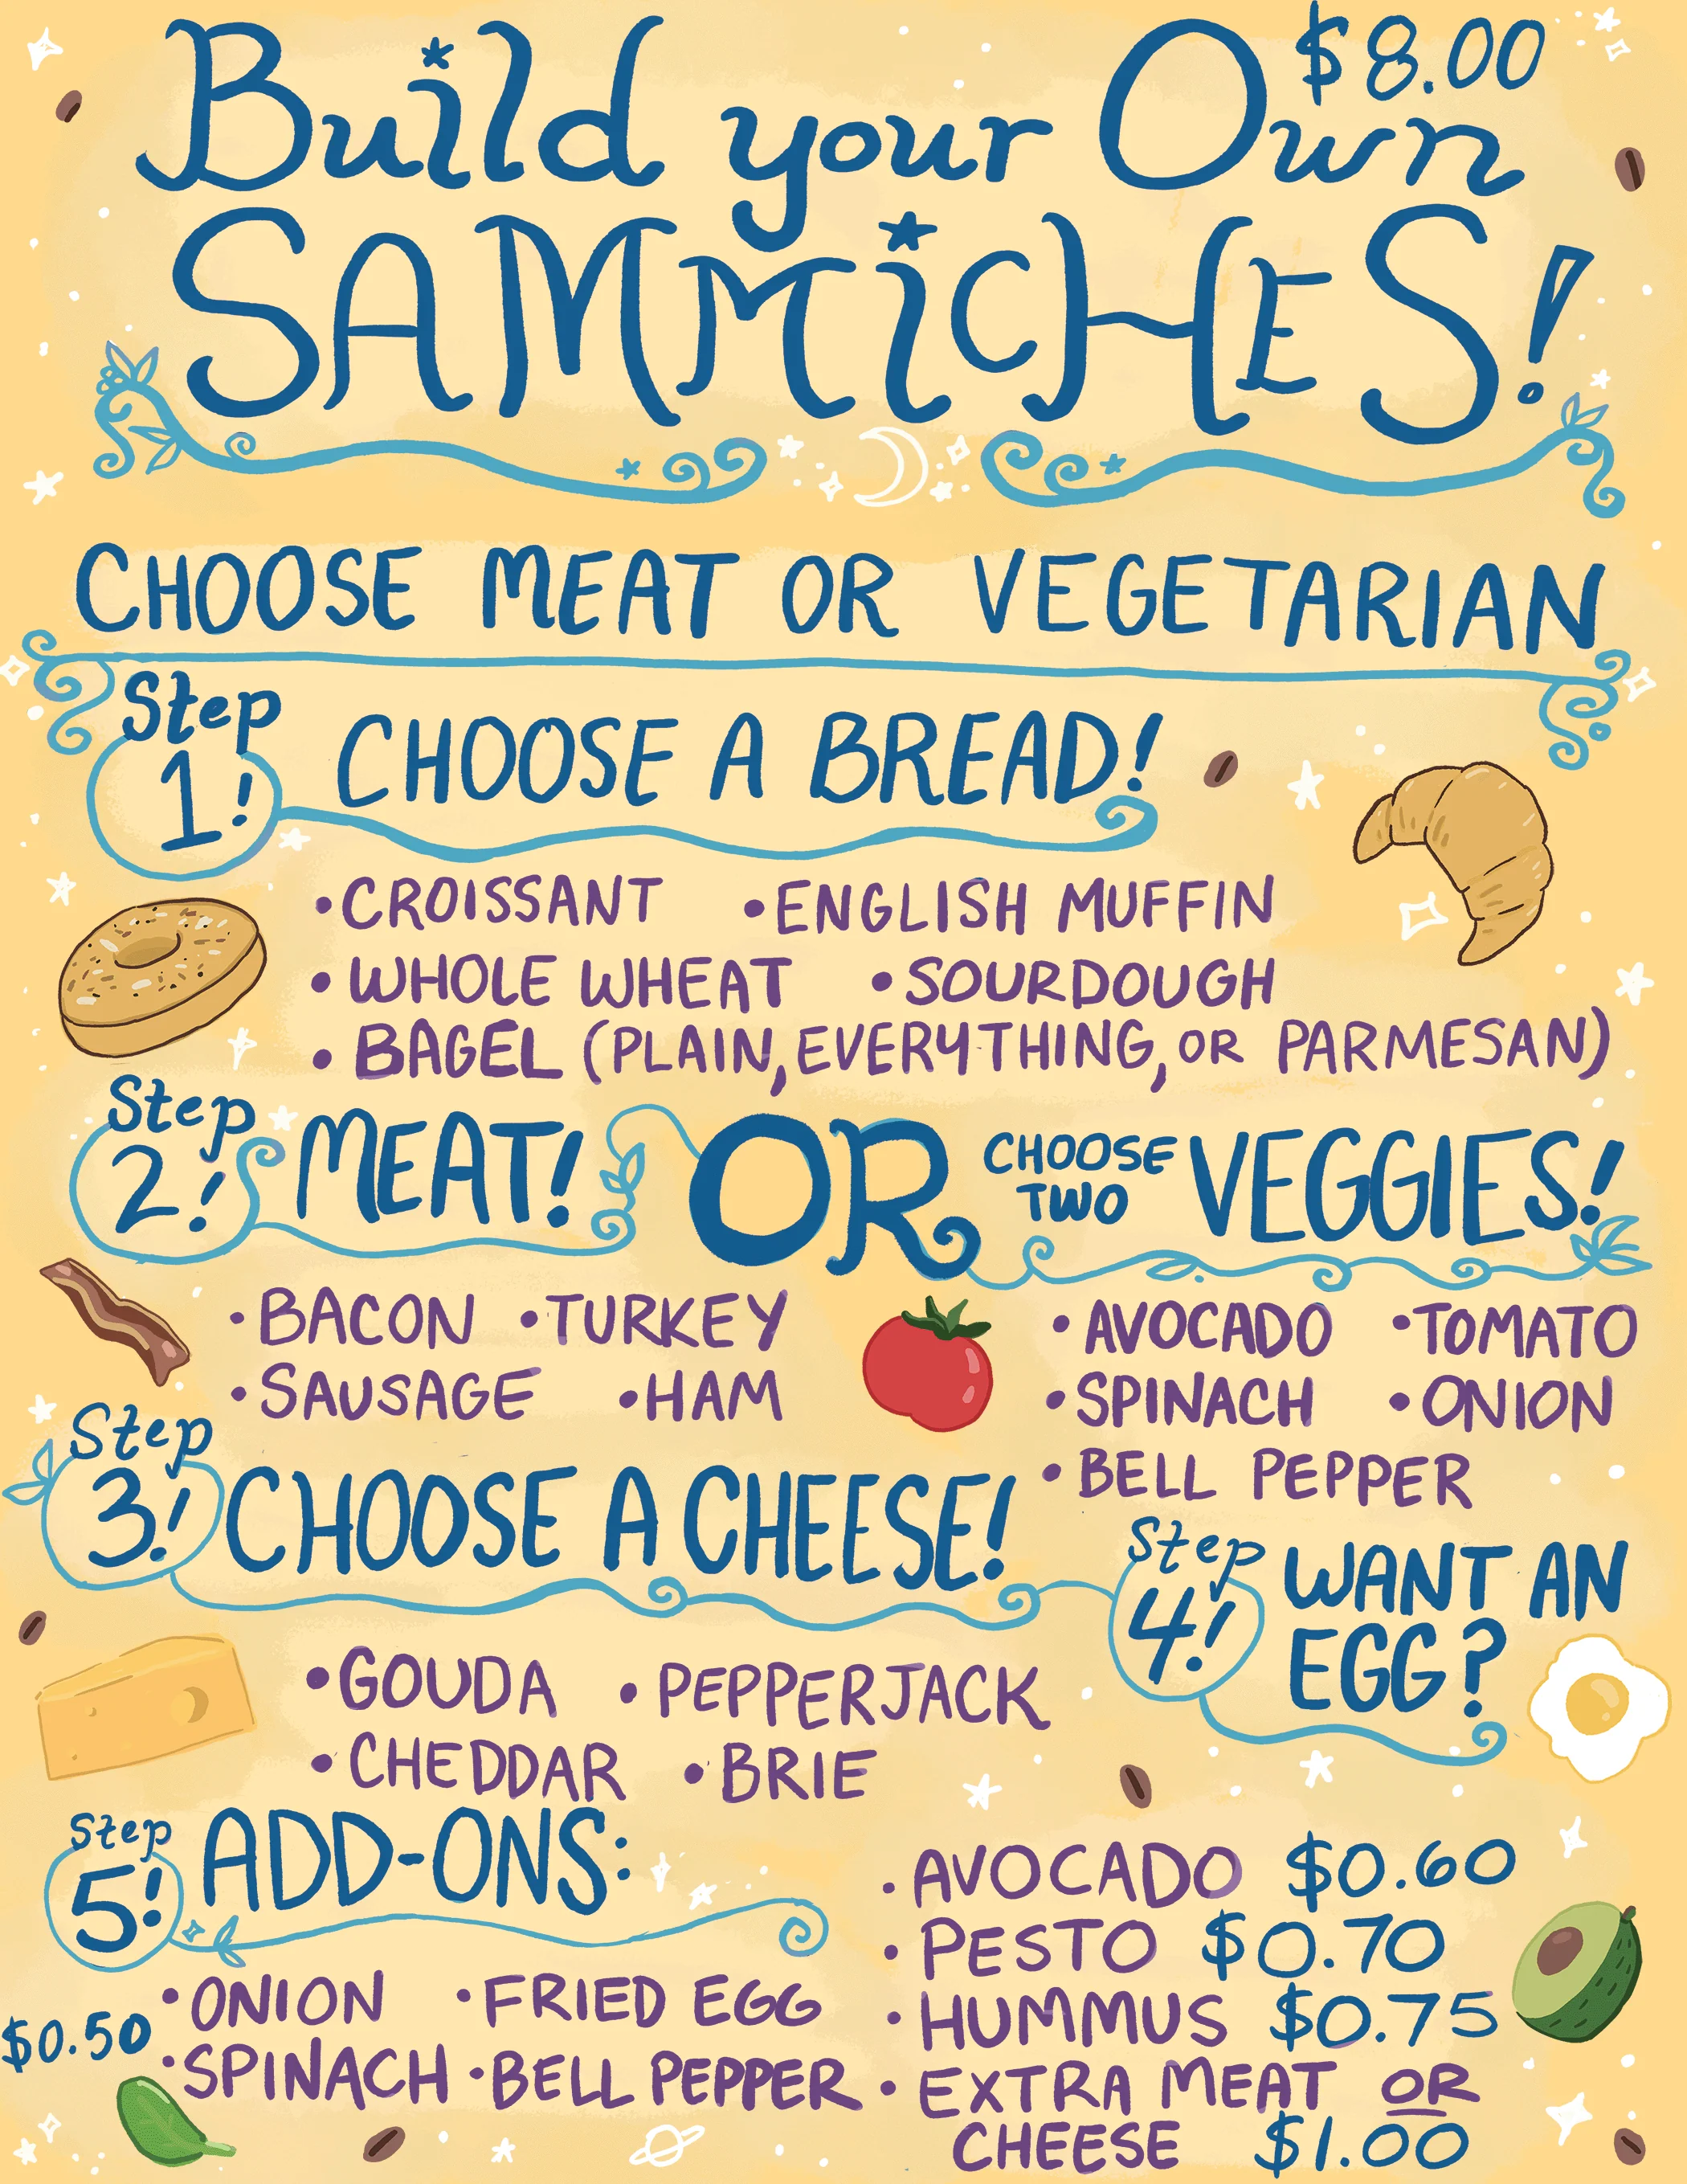 $8.00
Build your Own
SAMMiCHES!
CHOOSE MEAT OR VEGETARIAN
Step 1! CHOOSE A BREAD!
• CROISSANT • ENGLISH MUFFIN
• WHOLE WHEAT • SOURDOUGH
• BAGEL (PLAIN, EVERYTHING, OR PARMESAN)
Step 2! MEAT! OR CHOOSE TWO VEGGIES!
• BACON • TURKEY
• SAUSAGE • HAM
• AVOCADO • TOMATO
• SPINACH • ONION
• BELL PEPPER
Step 3! CHOOSE A CHEESE!
• GOUDA • PEPPERJACK
• CHEDDAR • BRIE
Step 4! WANT AN
EGG?
Step 5! ADD-ONS:
$0.50
• ONION • FRIED EGG
• SPINACH • BELL PEPPER
• AVOCADO $0.60
• PESTO $0.70
• HUMMUS $0.75
• EXTRA MEAT OR
CHEESE $1.00